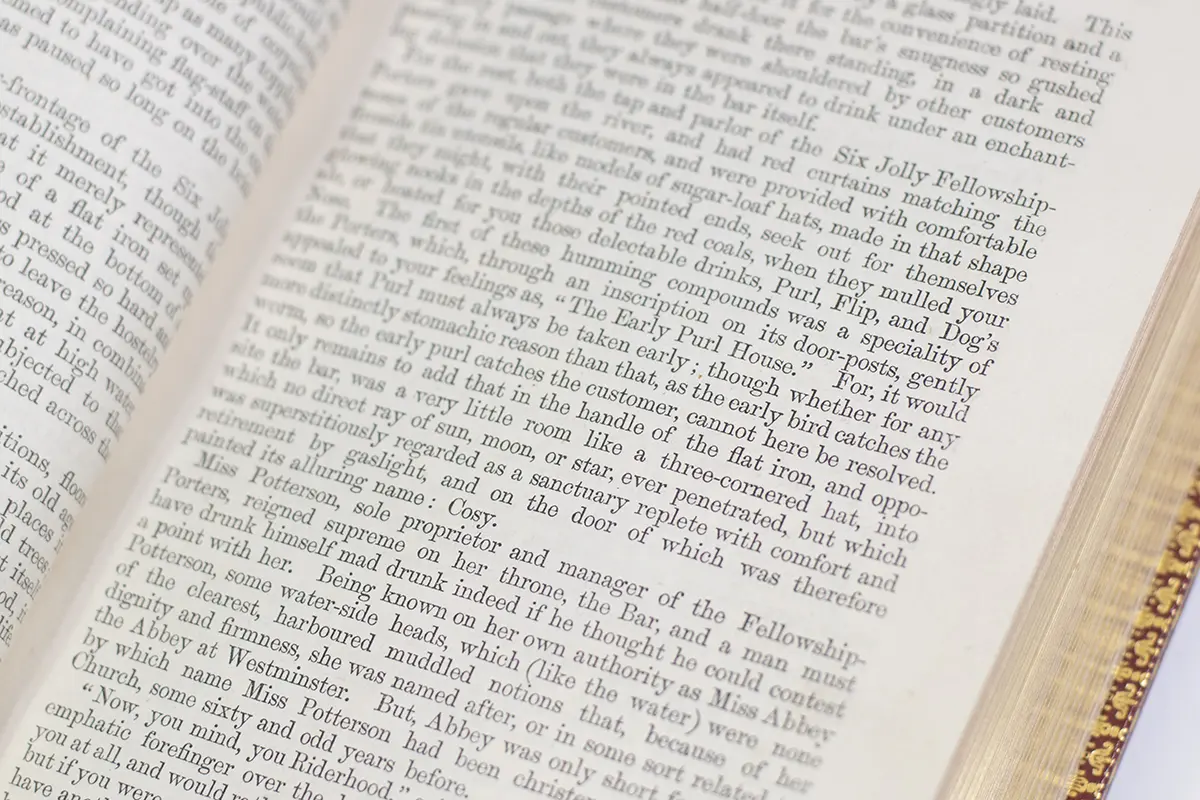 as many
over the
complaining flag-staff on
to have got into the
as paused so long on the
-frontage of the Six
establishment, though
it merely
of a flat iron set
at the bottom of
pressed so hard
to leave the
reason, in
at high
to the
across
its old
places
trees
laid. This
a glass partition and a
for the convenience of resting
half-door the bar's snugness so gushed
customers drank there standing, in a dark and
passage where they were shouldered by other customers
and out, they always appeared to drink under an enchant-
delusion that they were in the bar itself.
For the rest, both the tap and parlor of the Six Jolly Fellowship-
Porters gave upon the river, and had red curtains matching the
noses of the regular customers, and were provided with comfortable
fireside tin utensils, like models of sugar-loaf hats, made in that shape
that they might, with their pointed ends, seek out for themselves
glowing nooks in the depths of the red coals, when they mulled your
ale, or heated for you those delectable drinks, Purl, Flip, and Dog's
Nose. The first of these humming compounds was a speciality of
the Porters, which, through an inscription on its door-posts, gently
appealed to your feelings as, "The Early Purl House." For, it would
seem that Purl must always be taken early; though whether for any
more distinctly stomachic reason than that, as the early bird catches the
worm, so the early purl catches the customer, cannot here be resolved.
It only remains to add that in the handle of the flat iron, and oppo-
site the bar, was a very little room like a three-cornered hat, into
which no direct ray of sun, moon, or star, ever penetrated, but which
was superstitiously regarded as a sanctuary replete with comfort and
retirement by gaslight, and on the door of which was therefore
painted its alluring name: Cosy.
Miss Potterson, sole proprietor and manager of the Fellowship-
Porters, reigned supreme on her throne, the Bar, and a man must
have drunk himself mad drunk indeed if he thought he could contest
a point with her. Being known on her own authority as Miss Abbey
Potterson, some water-side heads, which (like the water) were none
of the clearest, harboured muddled notions that, because of her
dignity and firmness, she was named after, or in some sort related to
the Abbey at Westminster. But, Abbey was only short for
by which name Miss Potterson had been
Church, some sixty and odd years before.
"Now, you mind, you Riderhood,"
emphatic forefinger over the
you at all, and would
but if you were
have